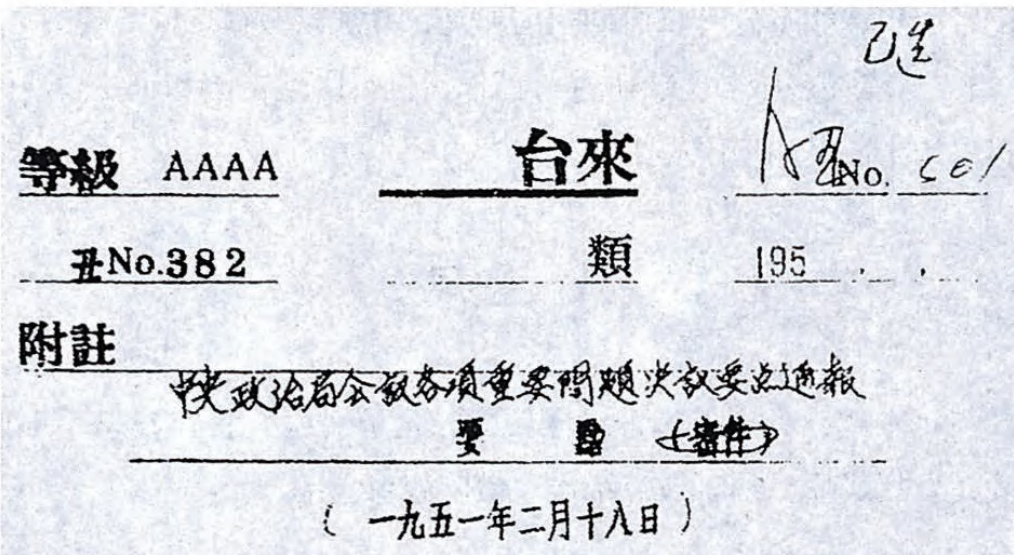 已送
等級 AAAA 台來 No. 501
丑No.382 類 195 . .
附註
中央政治局会議各項重要問題决議要点通報
要 點 (密件)
(一九五一年二月十八日)